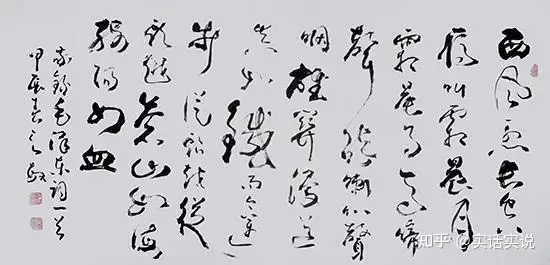 西风烈长空
雁叫霜晨月
霜晨月马蹄
聲碎喇叭聲
咽雄关漫道
真如铁而今迈
步从头越从
头越苍山如海
残阳如血
录毛泽东词一首
甲辰春之
知乎 @实话实说